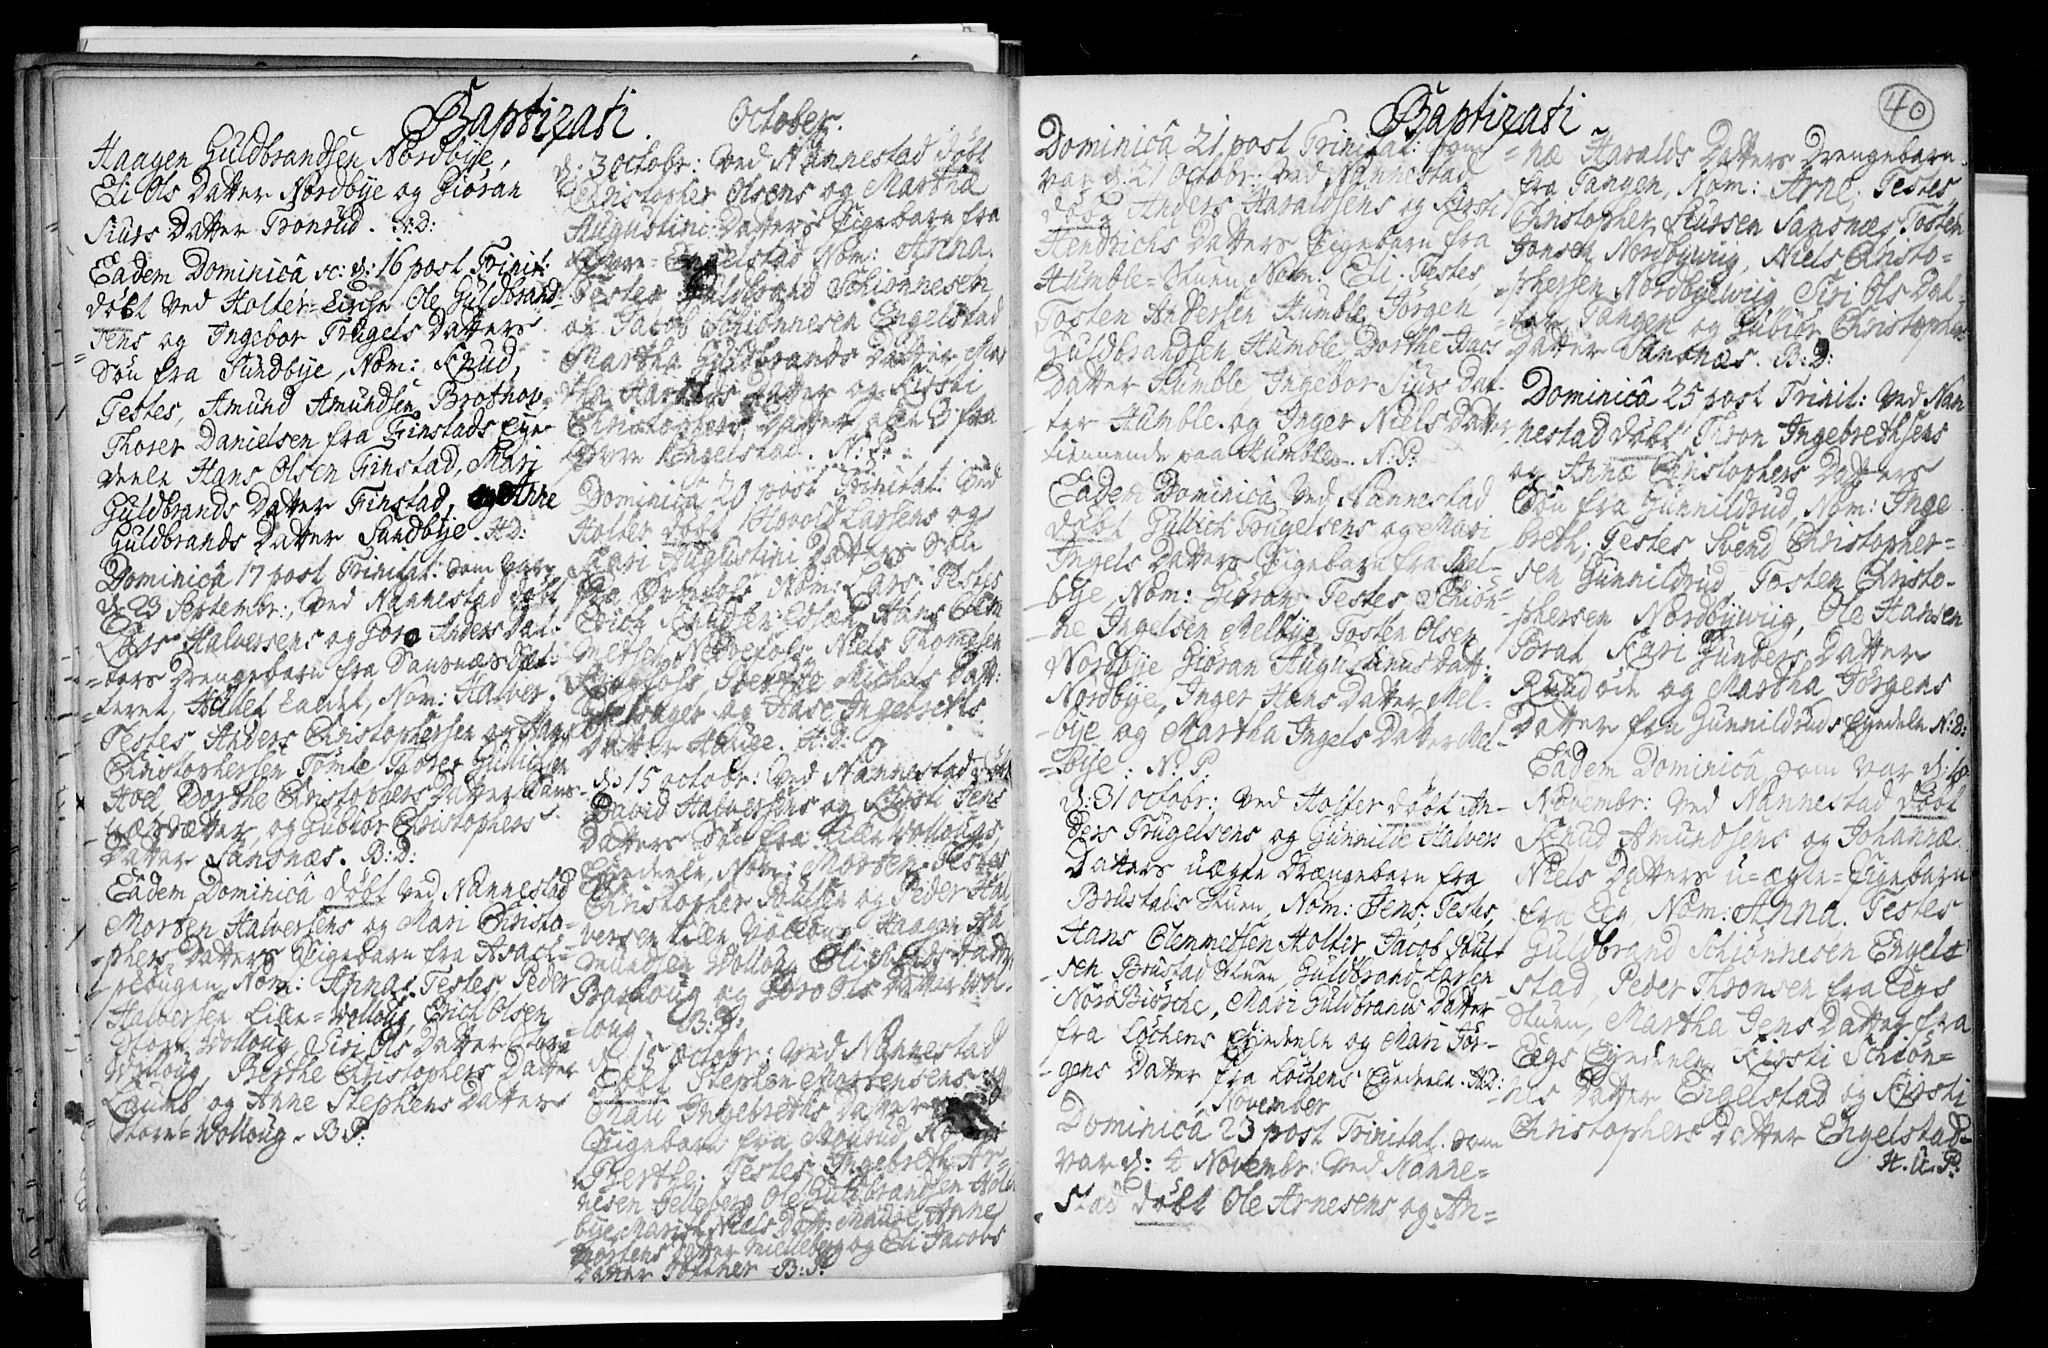 Baptizati.
Haagen Guldbrandsen Nordbÿe,
Eli Ols Datter Nordbÿe og Giöran
Siurs Datter Tronrud. H:D:
Eadem Dominicâ sc: d: 16 post Trinit:
döbt ved Holter-Kirche Ole Guldbrand-
=sens og Ingebor Trugels Datters
Sön fra Sundbÿe, Nom: Knud,
Testes, Amund Amundsen
Thorer Danielsen fra Finstads Eÿe-
deele Hans Olsen Finstad, Mari
Guldbrands Datter Finstad, og Anne
Guldbrands Datter Sundbÿe. H:D:
Dominicâ 17 post Trinitat: som var
d: 23 Septembr: ved Nannestad döbt
Lars Halversens og Goro Anders Dat-
=ters Drengebarn fra
kaldet, Nom: Halver.
Testes, Anders Christophersen og Hans
Christophersen Tömte Thorer Gulichsen
Hoel, Dorthe Christophers Datter
og Gubiör Christophers
Datter Sansnæs. B:D:
Eadem Dominicâ döbt ved Nannestad
Morten Halversens og Mari Christo-
=phers Datters Pigebarn fra
Nom: Anna, Testes Peder
Halversen Lille=Wolloug, Erich Olsen
Store Wolloug, Siri Ols Datter Store
Wolloug, Berthe Christophers Datter
og Anne Stephens Datter
Store=Wolloug. B:P:
October.
d: 3 Octobr: ved Nannestad döbt
Christopher Olsens og Martha
Augustini Datters Pigebarn fra
Engelstad Nom: Anna.
Testes Guldbrand Schiönnesen
og Jacob Schiönnesen Engelstad
Martha Guldbrands Datter Mar-
tha Haralds Datter og Kirsti
Christophers Datter, alle 3 fra
Engelstad. N:P:
Dominicâ 20 post Trinitat: ved
Holter döbt Hovold Larsens og
Kari Augustini Datters Sön
fra Nom: Lars. Testes
Erich Knudsen Hans Clem-
metsen Niels Thoresen
Michels Datt:
og Aase Ingebreths
Datter Houge. H:D:
d: 15 octobr: ved Nannestad döbt
David Halversens og Kirsti Jens
Datters Sön fra Lille Wollougs
Eÿedeele, Nom: Morten. Testes
Christopher Poulsen og Peder Hal-
versen Lille Wolloug, Haagen A-
mundsen Wolloug, Eli Datter
og Goro Ols Datter Wol-
=loug. B:D:
d: 15 octobr: ved Nannestad
döbt Sterken Mortensens og
Mari Ingebreths Datters
Pigebarn fra Mourud,
Berthe: Testes, Ingebreth Ar-
nesen Ole Guldbrandsen Hol-
bÿe, Niels Datt: Anne
Mortens Datter og Eli Jacobs
Datter B:P:
Baptizati
40
Dominicâ 21 post Trinitat: som
var d: 21 Octobr: ved Nannestad
döbt Anders Haraldsens og Kirsti
Hendrichs Datters Pigebarn fra
Humble=Stuen Nom: Eli. Testes,
Tosten Andersen Humble, Jörgen
Guldbrandsen Humble, Dorthe Aars
Datter Humble, Ingebor Siurs Dat-
-ter Humble. og Inger Niels Datter
tiennende paa Humble. N:P:
Eadem Dominicâ ved Nannestad
döbt Gullich Trugelsens og Mari
Ingels Datters Pigebarn fra Mel-
-bÿe, Nom: Giöran Testes Schiön-
-ne Ingelsen Melbÿe, Tosten Olsen
Nordbÿe Giöran Augustinus Datt:
Nordbÿe, Inger Hans Datter Mel-
-bÿe og Martha Ingels Datter Mel-
=bÿe. N:P:
d: 31 octobr: ved Holter döbt An-
ders Trugelsens og Gunnilde Halvers
Datters uægte Drængebarn fra
Brustads Stuen, Nom: Jens: Testes,
Hans Clemmetsen Holter, Jacob Poul-
-sen Brustad Stuen, Guldbrand Larsen
Nord Biörche, Mari Guldbrands Datter
fra Lochens Eÿedeele og Mari Jör-
-gens Datter fra Lochens Eÿedeele. H:D:
November
Dominicâ 23 post Trinitat. som
var d: 4 Novembr: ved Nanne=
stad döbt Ole Arnesens og An=
=næ Haralds Datters Drengebarn
fra Tangen, Nom: Arne, Testes,
Christopher Siursen Sansnæs Tosten
Jonsen Nordbÿwiig, Niels Christo-
=phersen Nordbÿewiig, Siri Ols Dat-
=ter Tangen og Gubiör Christophers
Datter Sansnæs. B:D:
Dominicâ 25 post Trinit: ved Nan
nestad döbt Thron Ingebrethsens
og Annæ Christophers Datters
Sön fra Gunnildrud, Nom: Inge
breth. Testes Svend Christopher=
sen Gunnildrud, Tosten Christo-
-phersen Nordbÿwiig, Ole Hansen
Brat, Kari Gunders Datter
Ruudöde og Martha Jörgens
Datter fra Gunnildruds Eÿedeele N:D:
Eadem Dominicâ, som var d: 18
Novembr: ved Nannestad döbt
Knud Amundsens og Johannæ
Niels Datters u=ægte=Pigebarn
fra Eeg, Nom: Anna. Testes
Guldbrand Schiönnesen Engel-
stad, Peder Thronsen fra Eegs
Stuen, Martha Jens Datter fra
Eegs Eÿedeele, Kirsti Schiön=
nes Datter Engelstad og Kirsti
Christophers Datter Engelstad-
H.U.P: